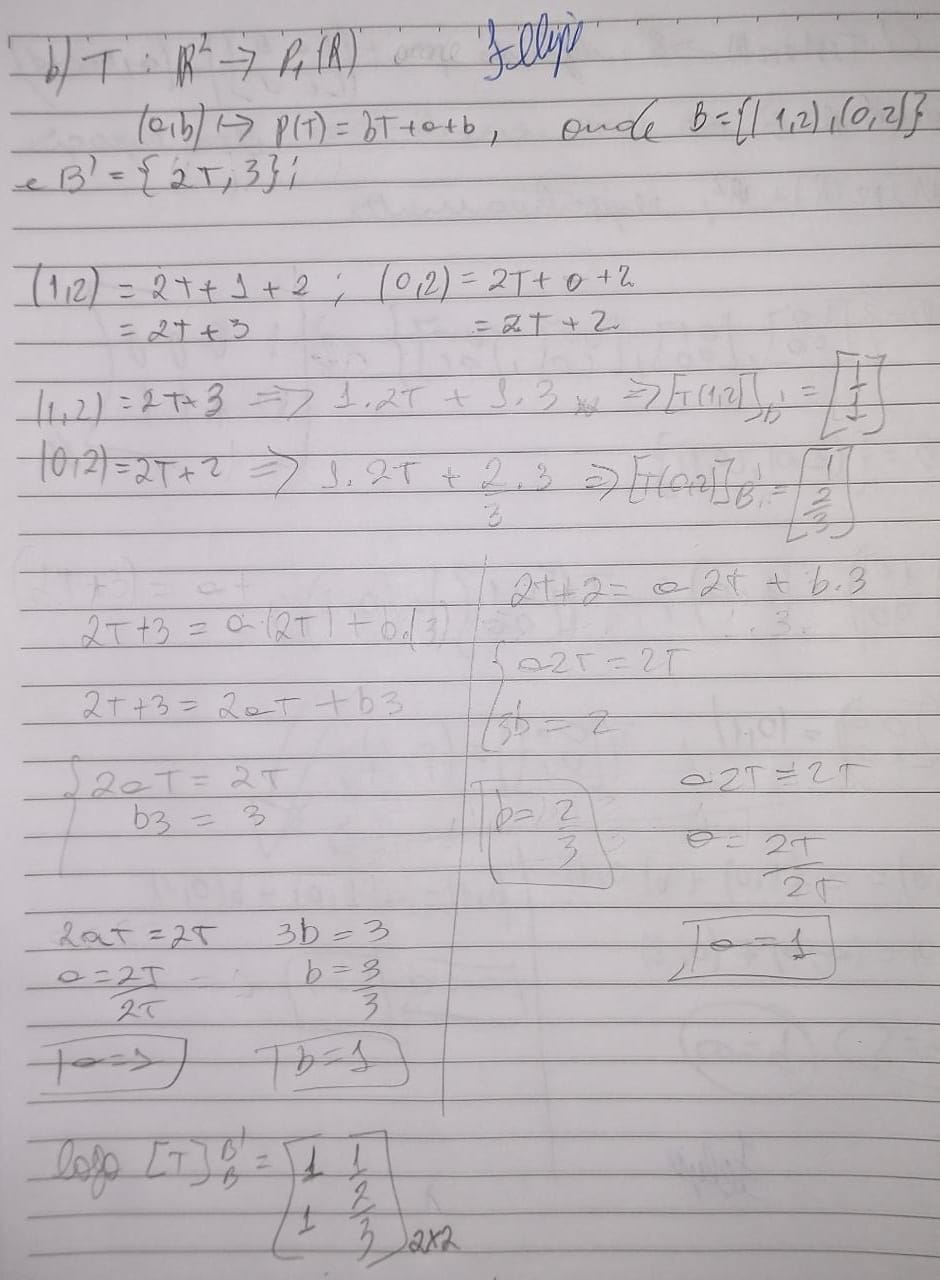 b) T : R² → P₁(R) Fellipi
(a,b) ↦ P(T) = bT+a+b, onde B={(1,2),(0,2)}
e B' = {2T, 3};
(1,2) = 2T+1+2 ; (0,2) = 2T+0+2
= 2T+3 = 2T+2
(1,2) = 2T+3 => 1.2T + 1.3 => [T(1,2)]B' = [1 1]
(0,2) = 2T+2 => 1.2T + 2/3 . 3 => [T(0,2)]B' = [1 2/3]
2T+2 = a 2T + b.3
2T+3 = a.(2T) + b.(3)
{ a2T = 2T
2T+3 = 2aT + b3
3b = 2
{ 2aT = 2T
b3 = 3
b = 2/3
a2T = 2T
a = 2T/2T
a = 1
2aT = 2T 3b = 3
a = 2T/2T b = 3/3
a = 1 b = 1
logo [T]B B' = [1 1
1 2/3] 2x2